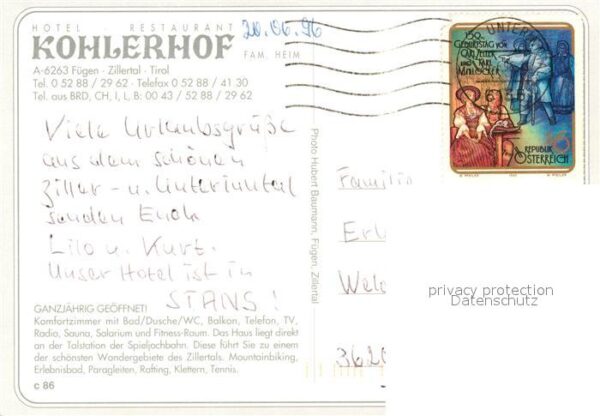 HOTEL · RESTAURANT
KOHLERHOF
FAM. HEIM
20.06.96
A-6263 Fügen · Zillertal · Tirol
Tel. 0 52 88 / 29 62 · Telefax 0 52 88 / 41 30
Tel. aus BRD, CH, I, L, B: 00 43 / 52 88 / 29 62
Viele Urlaubsgrüße
aus dem schönen
Ziller- u. Unterinntal
senden Euch
Lilo u. Kurt.
Unser Hotel ist in
STANS!
GANZJÄHRIG GEÖFFNET!
Komfortzimmer mit Bad/Dusche/WC, Balkon, Telefon, TV,
Radio, Sauna, Solarium und Fitness-Raum. Das Haus liegt direkt
an der Talstation der Spieljochbahn. Diese führt Sie zu einem
der schönsten Wandergebiete des Zillertals. Mountainbiking,
Erlebnisbad, Paragleiten, Rafting, Klettern, Tennis.
c 86
Photo Hubert Baumann, Fügen, Zillertal
150.
GEBURTSTAG VON
CARL ZELLER
UND KARL
MILLÖCKER
6
REPUBLIK
ÖSTERREICH
Familie
Erl
3620
privacy protection
Datenschutz